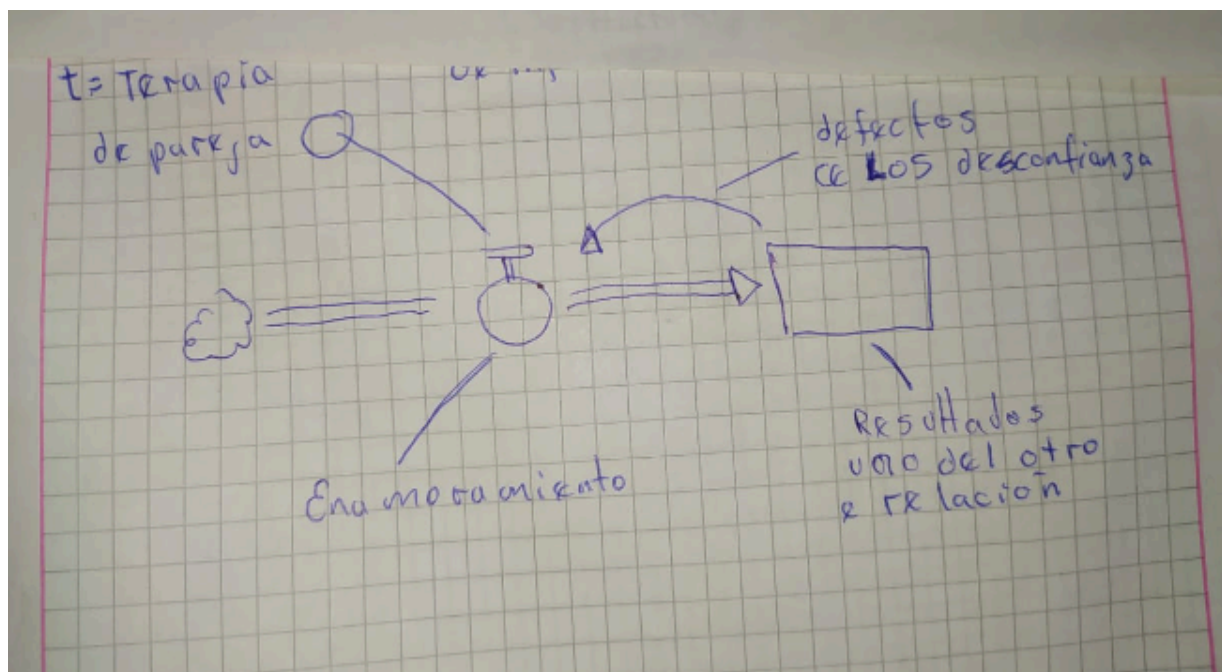 t= Terapia
de pareja
defectos
ce LOS desconfianza
Enamoramiento
Resultados
uno del otro
e relación